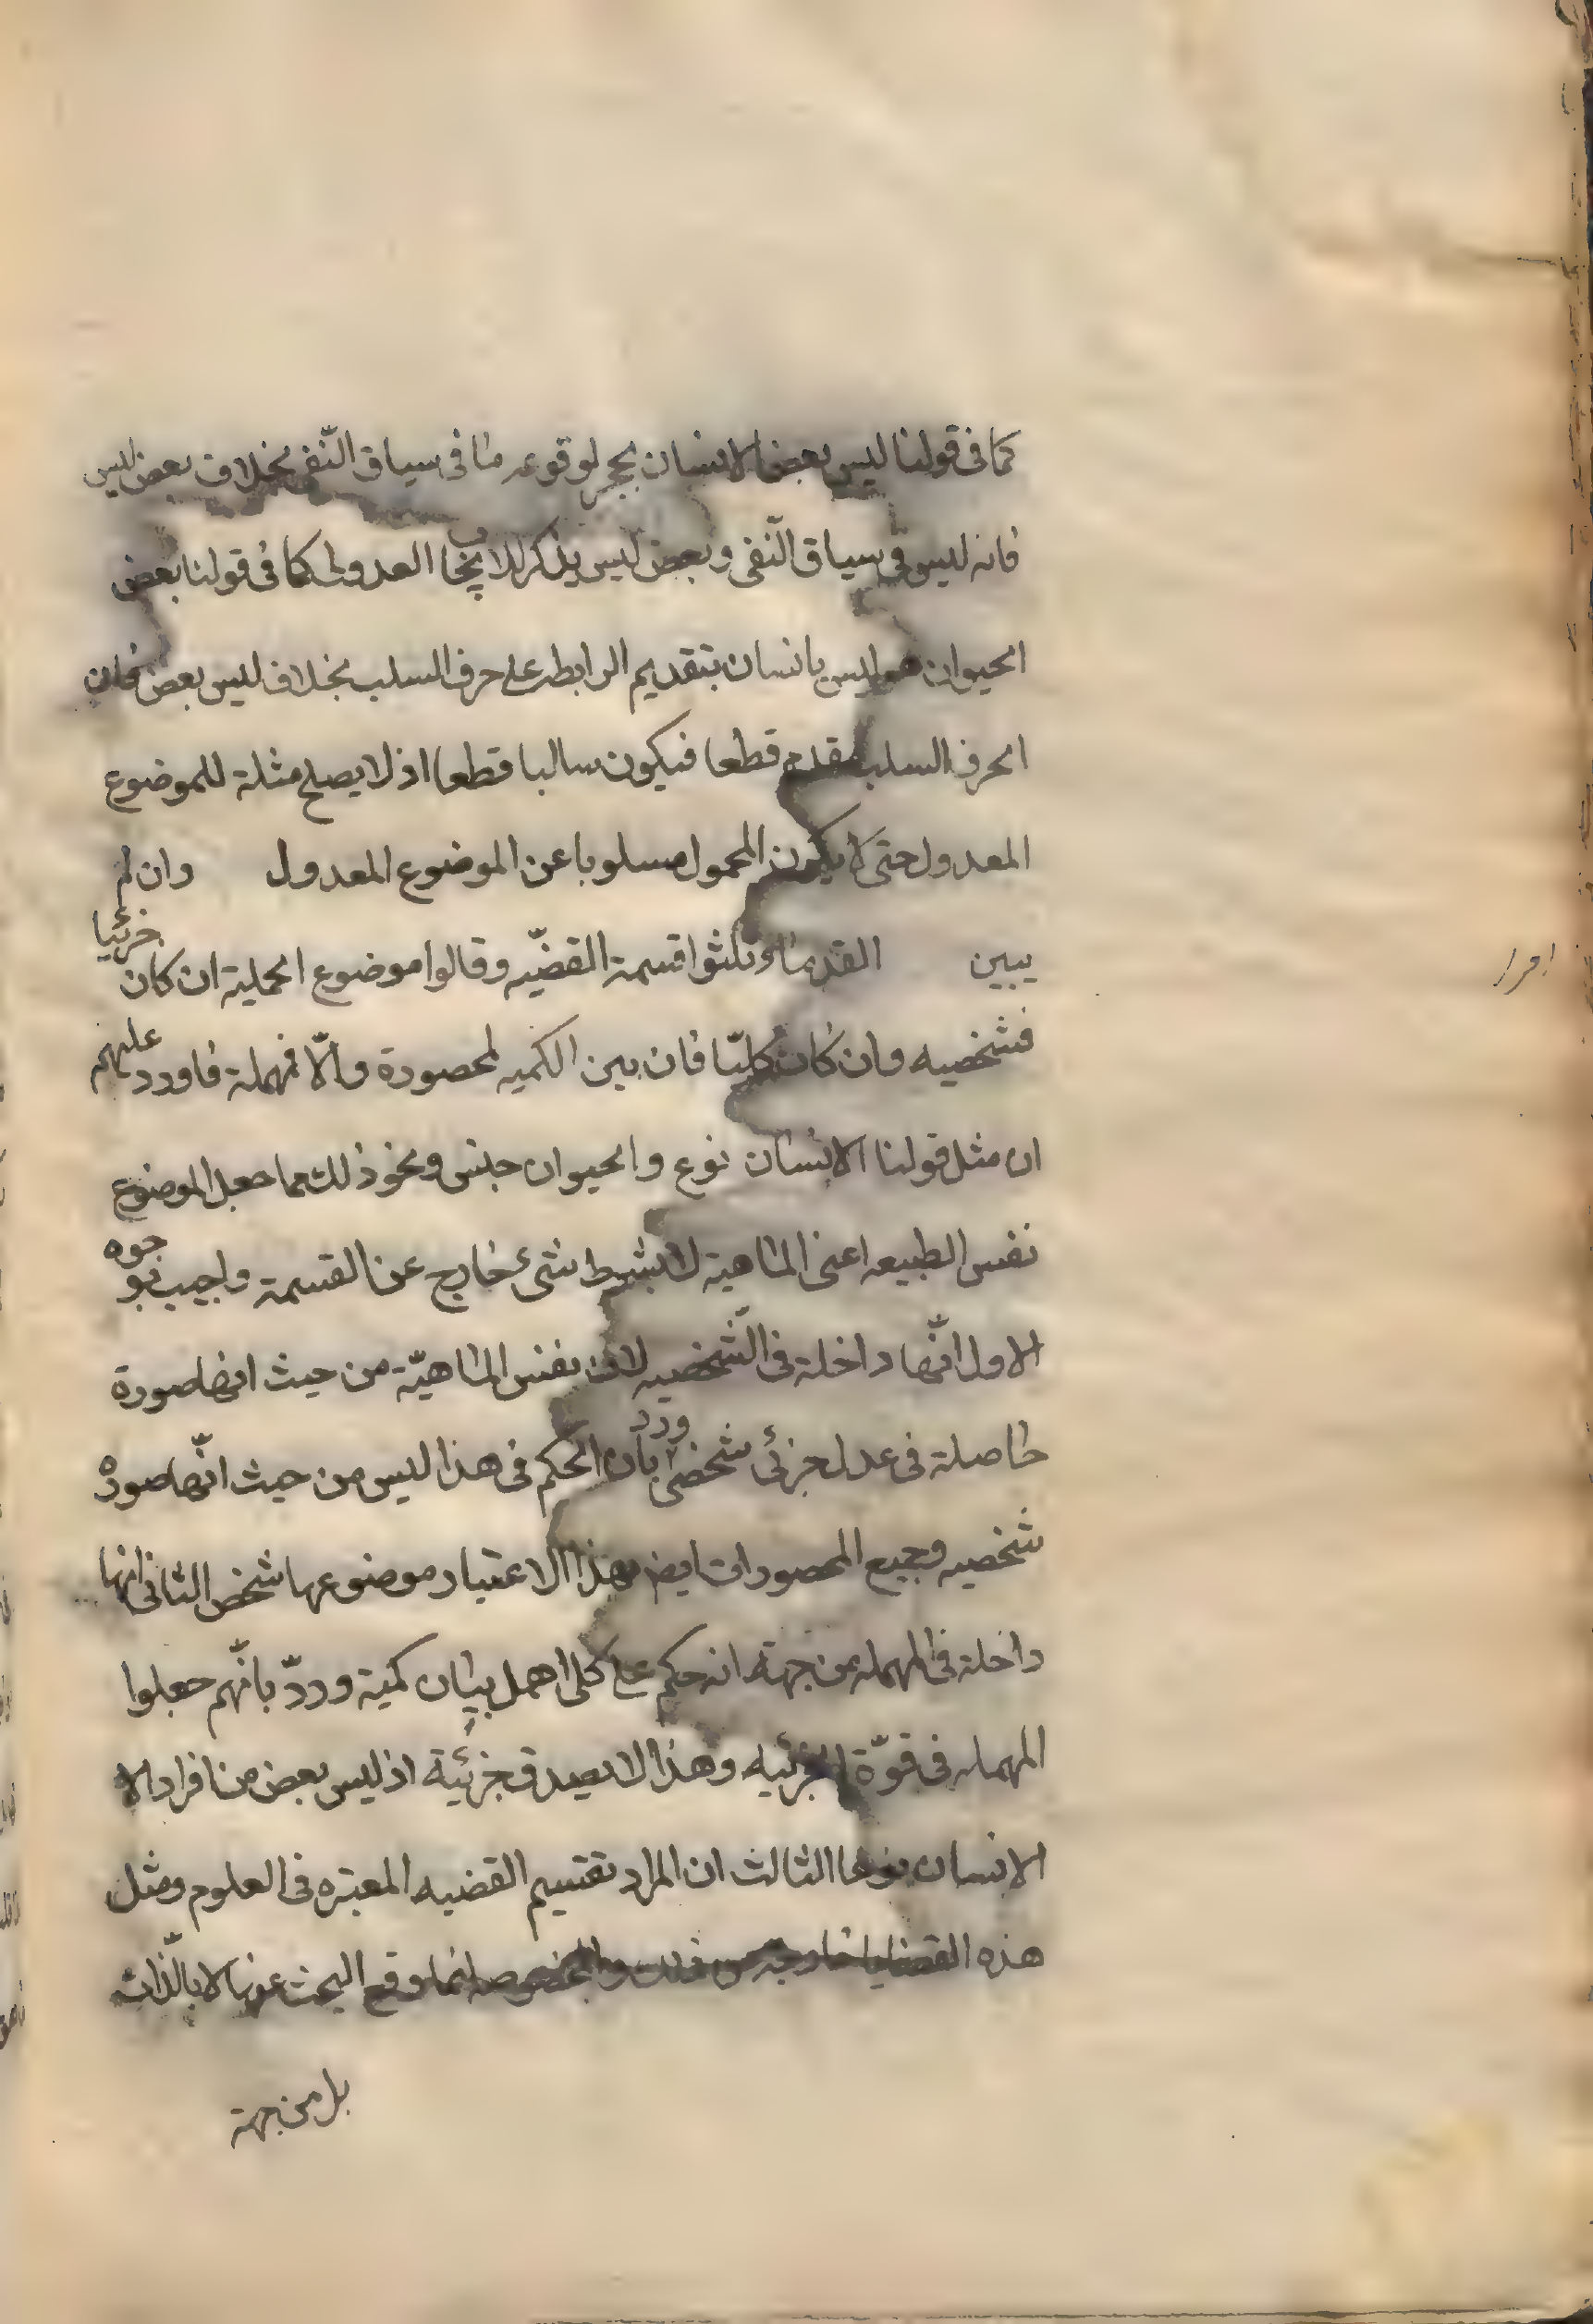 كما فى قولنا ليس بعض الانسان بحجر لوقوعه ما فى سياق النّفى بخلاف بعض ليس
فانه ليس فى سياق النّفى وبعض ليس يذكر للايجاب العدولى كما فى قولنا بعض
الحيوان هو ليس بانسان بتقديم الرابطه على حرف السلب بخلاف ليس بعض فان
الحرف السلب مقدم قطعا فيكون سالبا قطعا اذ لا يصلح مثلة للموضوع
المعدول حتى لا يكون المحمول مسلوبا عن الموضوع المعدول وان لم
يبين القدماء وثلثوا قسمة القضيّه وقالوا موضوع الحملية ان كان جزئيا
فشخصيه وان كان كليّا فان بين الكميه لمحصورة والّا فمهملة فاورد عليهم
ان مثل قولنا الانسان نوع والحيوان جنس ونحو ذلك مما جعل الموضوع
نفس الطبيعه اعنى الماهية لا بشرط شئ خارج عن القسمة واجيب بوجوه
الاول انّها داخلة فى الشّخصيه لان نفس الماهيّة من حيث انها صورة
حاصلة فى عدل جزئى شخصى ورد بان الحكم فى هذا ليس من حيث انّها صورة
شخصيه وجميع المحصورات ايض بهذا الاعتبار موضوعها شخص الثانى انها
داخلة فى المهمله من جهة انه حكم على كلى اهمل بيان كمية وردّ بانّهم جعلوا
المهمله فى قوّة الجزئيه وهذا لا يصدق جزئية اذ ليس بعض من افراد الا
الانسان نوعا الثالث ان المراد تقسيم القضيه المعتبره فى العلوم ومثل
هذه القضايا خارجه عن ذلك والمخصوصه انما وقع البحث عنها لا بالذّات
بل من جهة